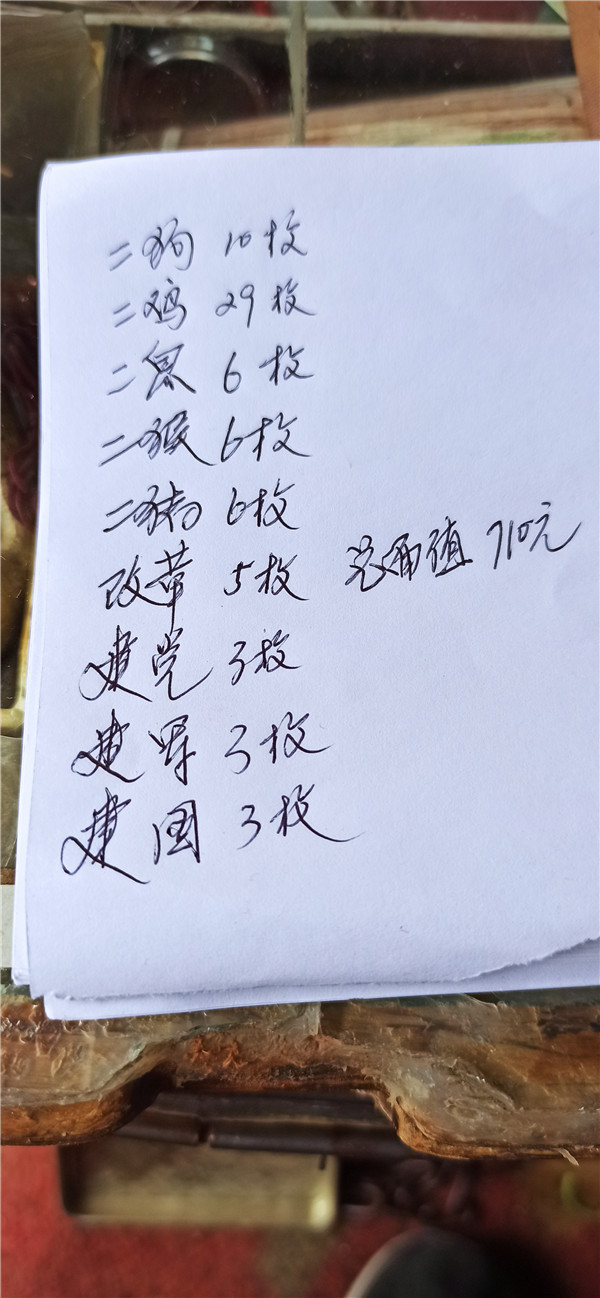 二狗 10枚
二鸡 29枚
二鼠 6枚
二猴 6枚
二猪 6枚
改革 5枚 总面值 710元
建党 3枚
建军 3枚
建国 3枚